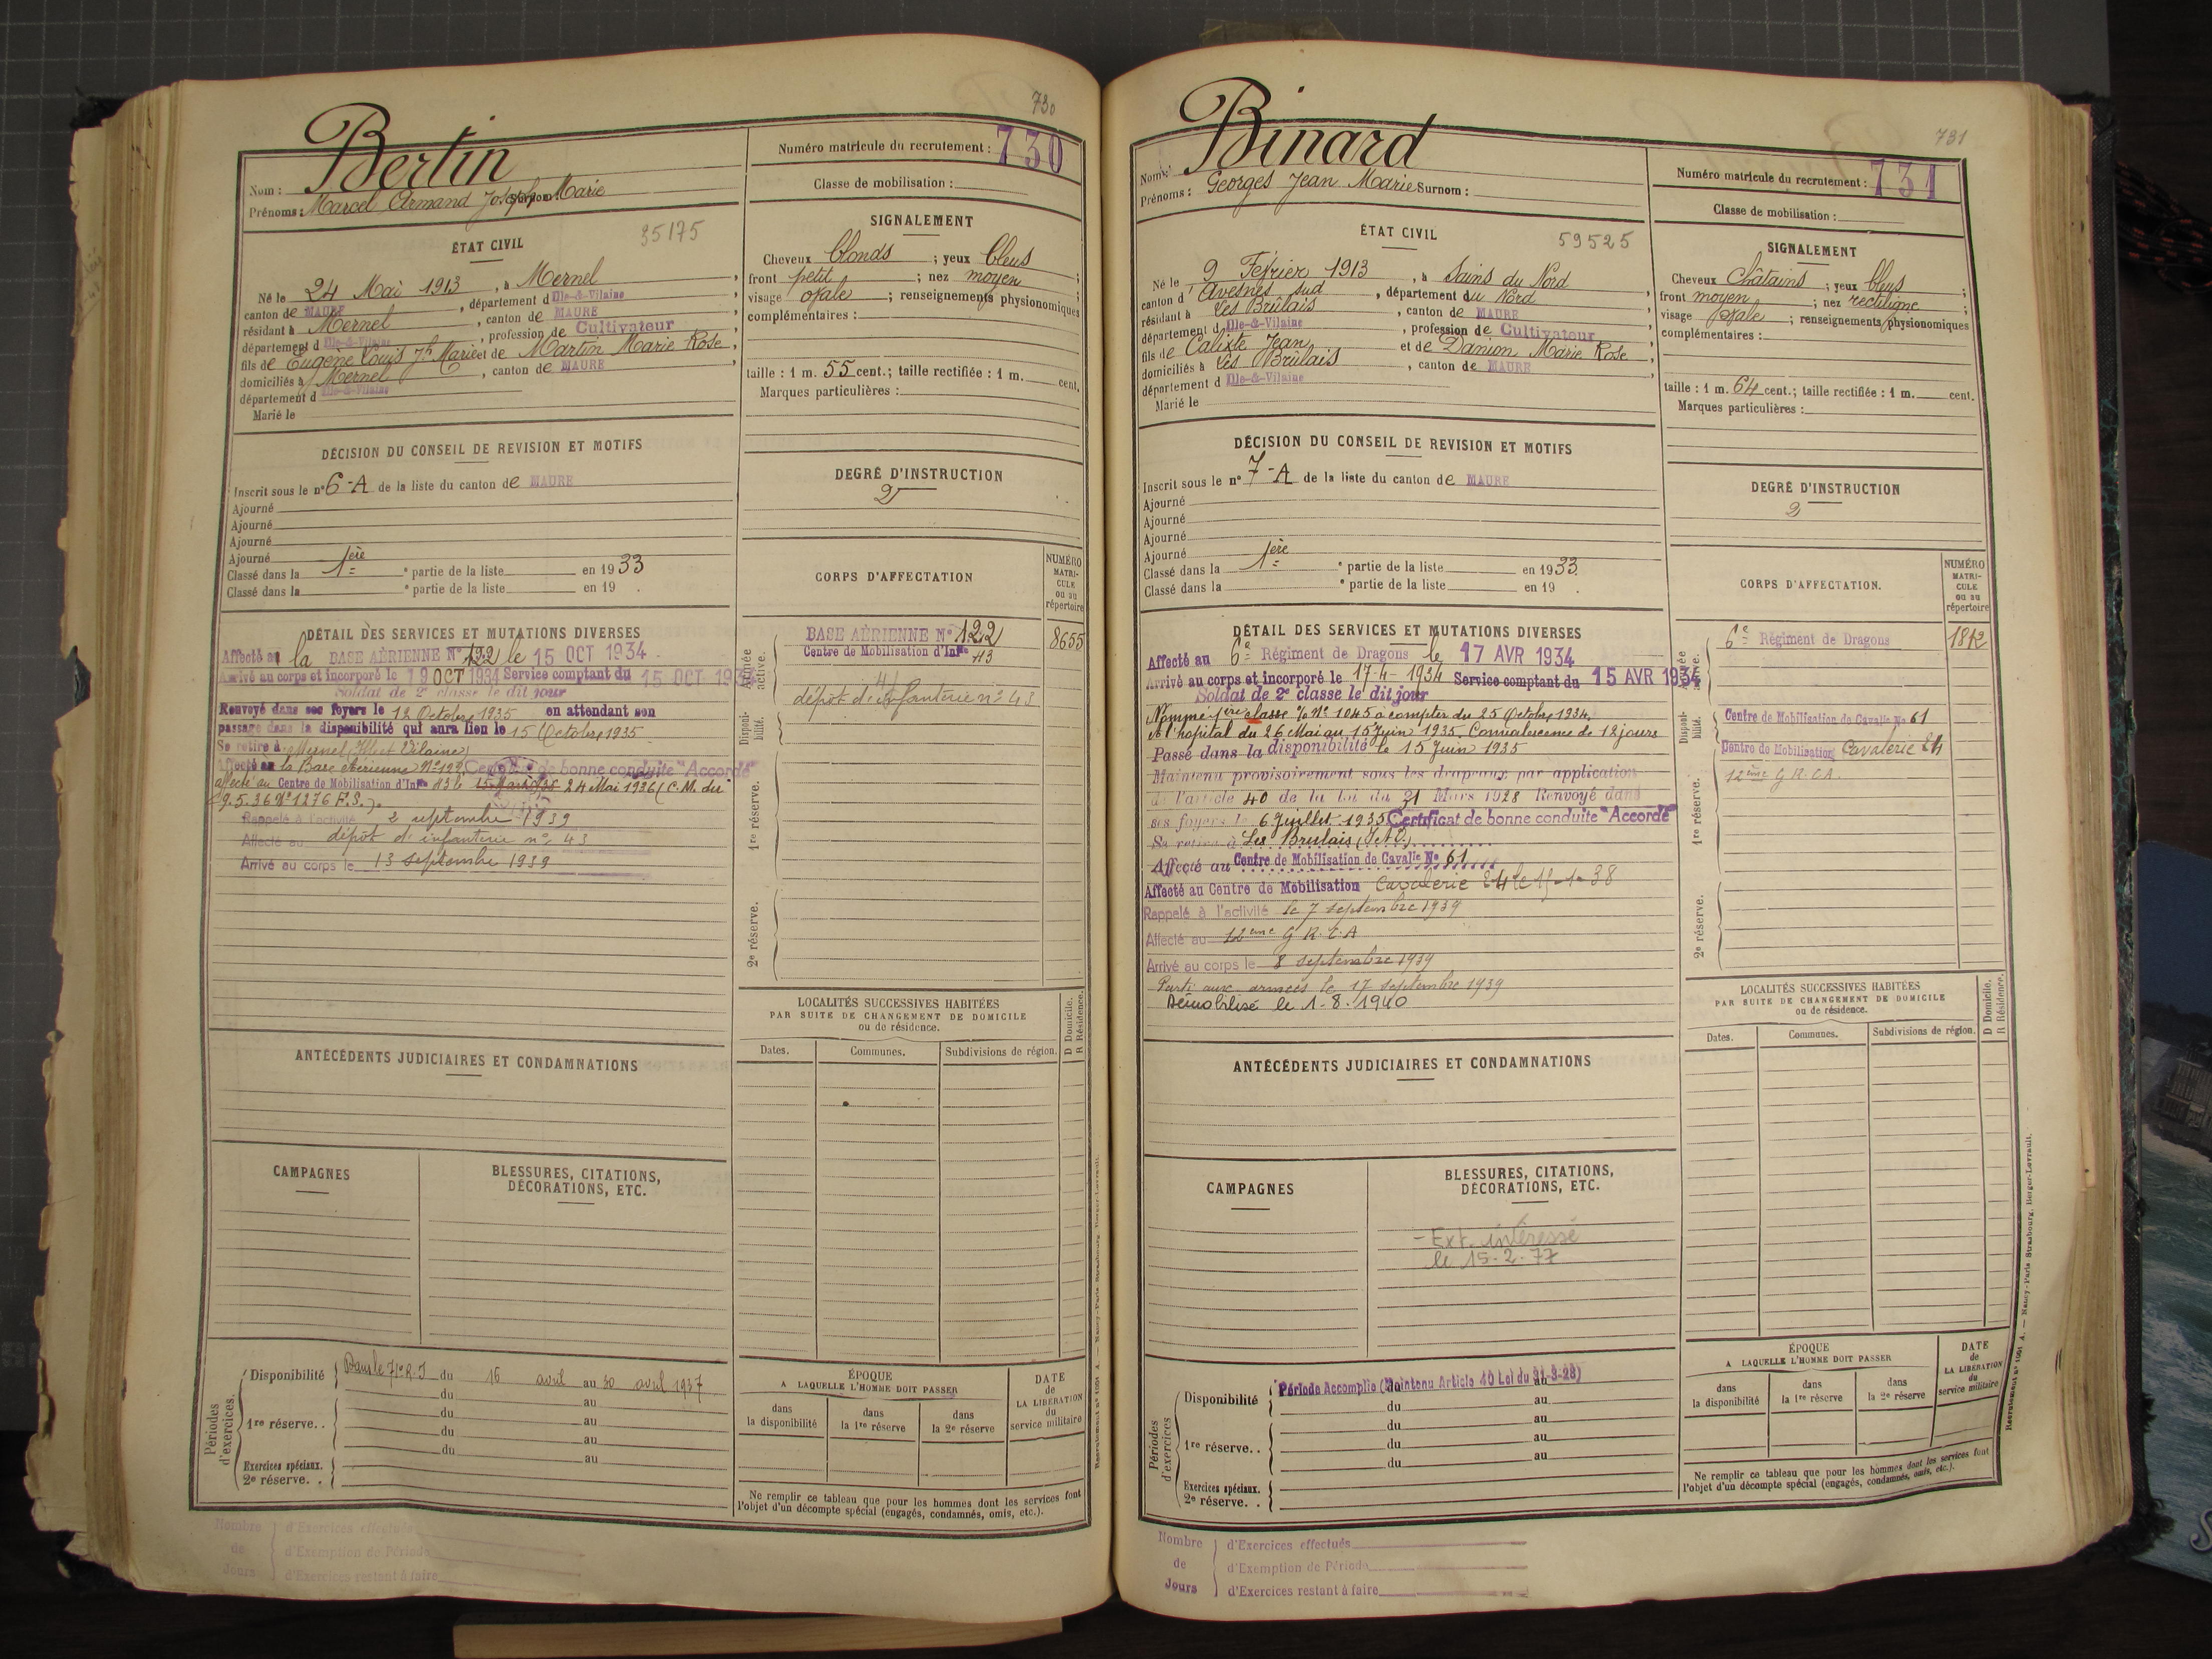 730
Bertin
Nom :
Prénoms : Marcel Armand Joseph Marie
Numéro matricule du recrutement : 730
Classe de mobilisation :
ÉTAT CIVIL
35175
Né le 24 Mai 1913, à Mernel,
canton de MAURE, département d Ille-&-Vilaine,
résidant à Mernel, canton de MAURE,
département d Ille-&-Vilaine, profession de Cultivateur
fils de Eugène Louis Jh Marie et de Martin Marie Rose,
domiciliés à Mernel, canton de MAURE,
département d Ille-&-Vilaine
Marié le
SIGNALEMENT
Cheveux blonds ; yeux bleus ;
front petit ; nez moyen ;
visage ovale ; renseignements physionomiques
complémentaires :
taille : 1 m. 55 cent.; taille rectifiée : 1 m. cent.
Marques particulières :
DÉCISION DU CONSEIL DE REVISION ET MOTIFS
Inscrit sous le n° 6-A de la liste du canton de MAURE
Ajourné
Ajourné
Ajourné
Ajourné
Classé dans la 1ère partie de la liste en 1933
Classé dans la partie de la liste en 19 .
DEGRÉ D'INSTRUCTION
2
CORPS D'AFFECTATION
NUMÉRO
MATRI-
CULE
ou au
répertoire
Armée active.
BASE AÉRIENNE N° 122
8655
Centre de Mobilisation d'Infie 43
dépôt d'infanterie n° 43
Disponi-
bilité.
1re réserve.
2e réserve.
DÉTAIL DES SERVICES ET MUTATIONS DIVERSES
Affecté à la BASE AÉRIENNE N° 122 le 15 OCT 1934
Arrivé au corps et incorporé le 19 OCT 1934 Service comptant du 15 OCT 1934
Soldat de 2e classe le dit jour
Renvoyé dans ses foyers le 12 Octobre 1935 en attendant son
passage dans la disponibilité qui aura lieu le 15 Octobre 1935
Se retire à Mernel (Ille et Vilaine)
Affecté à la Base Aérienne N° 122 Certificat de bonne conduite "Accordé"
affecté au Centre de Mobilisation d'Infie 43 le 24 Mai 1936 (C.M. du
9.5.36 N° 1276 F.S.).
Rappelé à l'activité 2 septembre 1939
Affecté au dépôt d'infanterie n° 43
Arrivé au corps le 13 septembre 1939
LOCALITÉS SUCCESSIVES HABITÉES
PAR SUITE DE CHANGEMENT DE DOMICILE
ou de résidence.
D Domicile.
R Résidence.
Dates. Communes. Subdivisions de région.
ANTÉCÉDENTS JUDICIAIRES ET CONDAMNATIONS
CAMPAGNES
BLESSURES, CITATIONS,
DÉCORATIONS, ETC.
Périodes d'exercices.
Disponibilité Dans le 71e R.I du 16 avril au 30 avril 1937
du au
1re réserve. . du au
du au
du au
Exercices spéciaux.
2e réserve. .
ÉPOQUE
A LAQUELLE L'HOMME DOIT PASSER
dans la disponibilité
dans la 1re réserve
dans la 2e réserve
DATE
de
LA LIBÉRATION
du
service militaire
Ne remplir ce tableau que pour les hommes dont les services font
l'objet d'un décompte spécial (engagés, condamnés, omis, etc.).
Nombre de Jours
d'Exercices effectués
d'Exemption de Période
d'Exercices restant à faire
731
Binard
Nom :
Prénoms : Georges Jean Marie Surnom :
Numéro matricule du recrutement : 731
Classe de mobilisation :
ÉTAT CIVIL
59525
Né le 9 Février 1913, à Sains du Nord
canton d'Avesnes sud, département du Nord
résidant à Les Brûlais, canton de MAURE
département d Ille-&-Vilaine, profession de Cultivateur
fils de Calixte Jean et de Danion Marie Rose
domiciliés à Les Brûlais, canton de MAURE
département d Ille-&-Vilaine
Marié le
SIGNALEMENT
Cheveux Châtains ; yeux bleus ;
front moyen ; nez rectiligne ;
visage ovale ; renseignements physionomiques
complémentaires :
taille : 1 m. 64 cent.; taille rectifiée : 1 m. cent.
Marques particulières :
DÉCISION DU CONSEIL DE REVISION ET MOTIFS
Inscrit sous le n° 7-A de la liste du canton de MAURE
Ajourné
Ajourné
Ajourné
Ajourné
Classé dans la 1ère partie de la liste en 1933.
Classé dans la partie de la liste en 19 .
DEGRÉ D'INSTRUCTION
2
CORPS D'AFFECTATION.
NUMÉRO
MATRI-
CULE
ou au
répertoire
Armée active.
6e Régiment de Dragons
Disponi-
bilité.
Centre de Mobilisation de Cavalie No 61
Centre de Mobilisation Cavalerie 24
12ème G.R.C.A.
1re réserve.
2e réserve.
DÉTAIL DES SERVICES ET MUTATIONS DIVERSES
Affecté au 6e Régiment de Dragons le 17 AVR 1934
Arrivé au corps et incorporé le 17-4-1934 Service comptant du 15 AVR 1934
Soldat de 2e classe le dit jour
Nommé 1ère classe % N° 1045 à compter du 25 Octobre 1934.
A l'hôpital du 26 Mai au 15 Juin 1935. Convalescence de 12 jours
Passé dans la disponibilité le 15 Juin 1935
Maintenu provisoirement sous les drapeaux par application
de l'article 40 de la loi du 31 Mars 1928 Renvoyé dans
ses foyers le 6 Juillet 1935 Certificat de bonne conduite "Accordé"
Se retire à Les Brulais (I.&V.)
Affecté au Centre de Mobilisation de Cavalie No 61
Affecté au Centre de Mobilisation Cavalerie 24 le 15-1-38
Rappelé à l'activité le 7 septembre 1939
Affecté au 12eme G.R.C.A
Arrivé au corps le 8 septembre 1939
Parti aux armées le 17 septembre 1939
Démobilisé le 1.8.1940
LOCALITÉS SUCCESSIVES HABITÉES
PAR SUITE DE CHANGEMENT DE DOMICILE
ou de résidence.
D Domicile.
R Résidence.
Dates. Communes. Subdivisions de région.
ANTÉCÉDENTS JUDICIAIRES ET CONDAMNATIONS
CAMPAGNES
BLESSURES, CITATIONS,
DÉCORATIONS, ETC.
- Ext. intéressé
le 15-2-77
Périodes d'exercices
Disponibilité Période Accomplie (Maintenu Article 40 Loi du 31-3-28)
du au
du au
1re réserve. . du au
du au
Exercices spéciaux.
2e réserve. .
ÉPOQUE
A LAQUELLE L'HOMME DOIT PASSER
dans la disponibilité
dans la 1re réserve
dans la 2e réserve
DATE
de
LA LIBÉRATION
du
service militaire
Ne remplir ce tableau que pour les hommes dont les services font
l'objet d'un décompte spécial (engagés, condamnés, omis, etc.).
Nombre de Jours
d'Exercices effectués
d'Exemption de Période
d'Exercices restant à faire
Nancy-Paris-Strasbourg. Berger-Levrault.